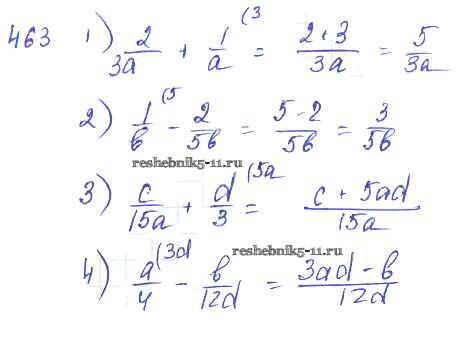 463 1) 2/3a + 1/a (3 = 2+3/3a = 5/3a
2) 1/b (5 - 2/5b = 5-2/5b = 3/5b
reshebnik5-11.ru
3) c/15a + d/3 (5a = c + 5ad/15a
reshebnik5-11.ru
4) a/4 (3d - b/12d = 3ad - b/12d